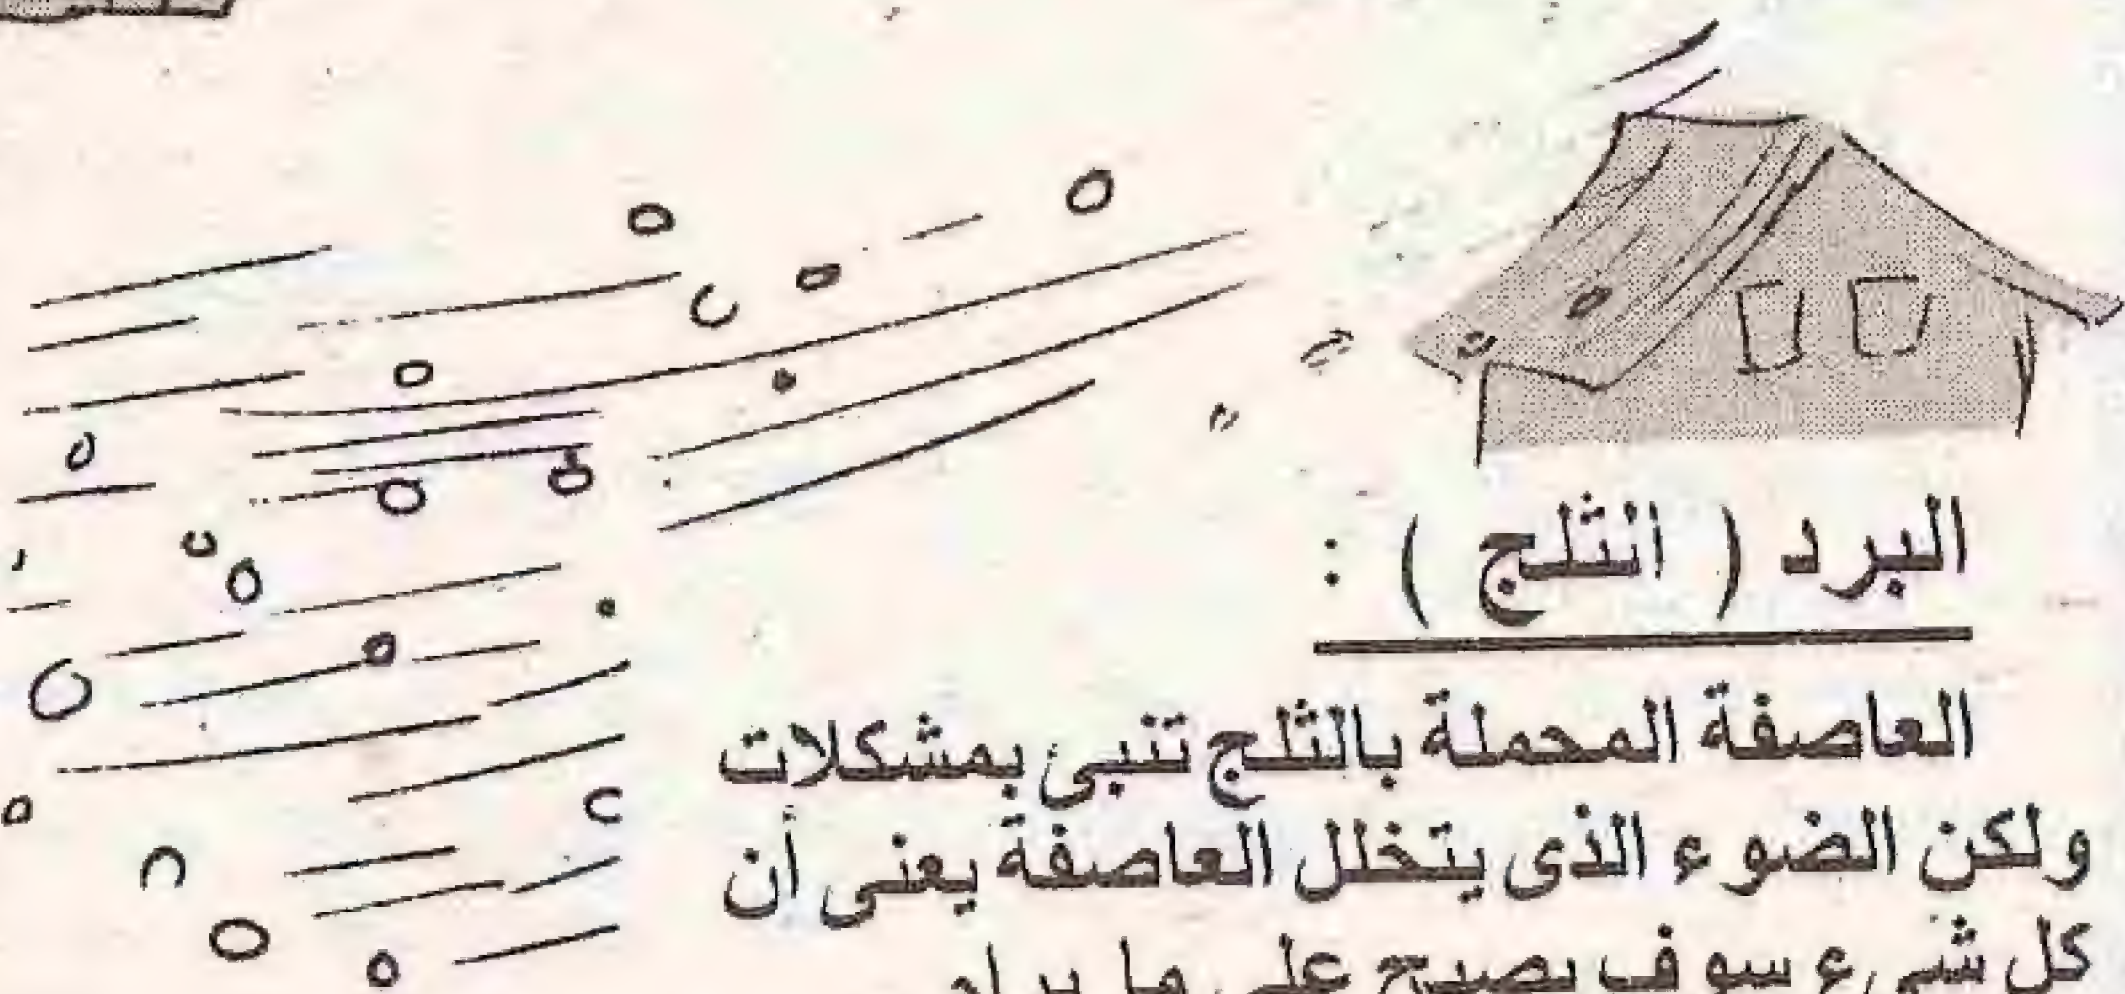 البرد ( الثلج ) :
العاصفة المحملة بالثلج تنبئ بمشكلات
ولكن الضوء الذى يتخلل العاصفة يعنى أن
كل شىء سوف يصبح على ما يرام